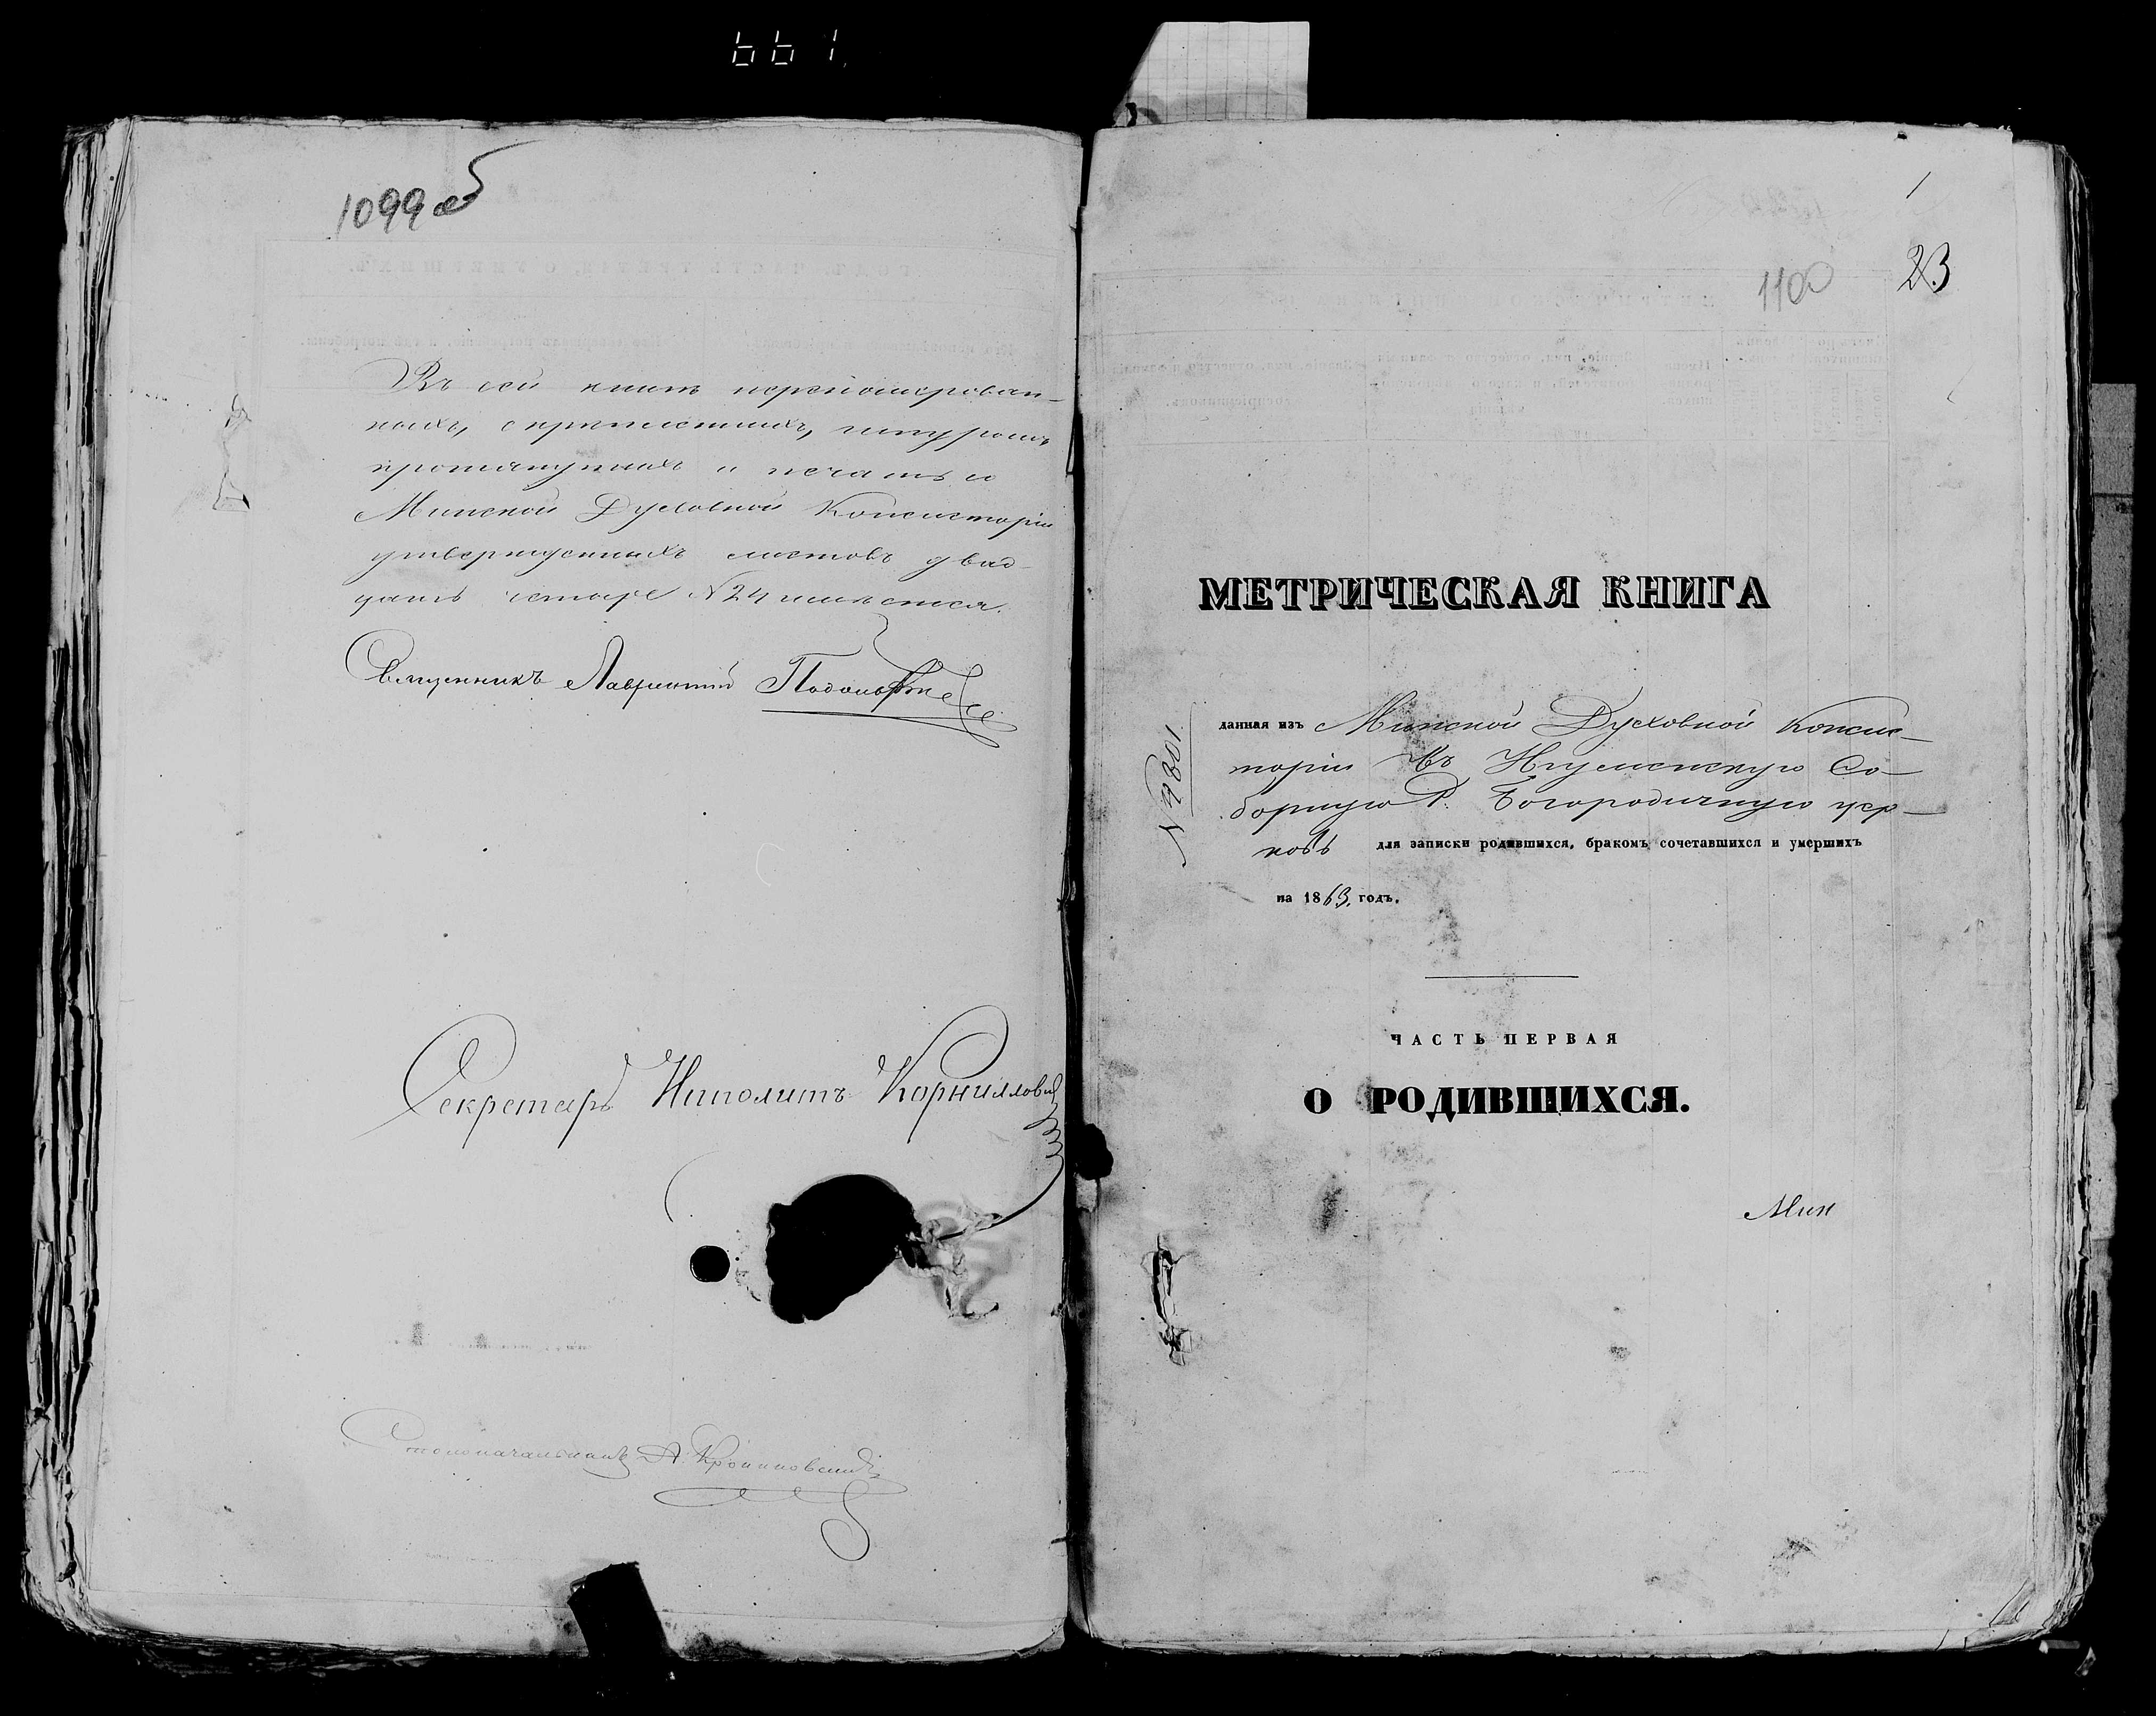 661
1099 об
Въ сей книгѣ переномерован-
ныхъ, скрепленныхъ, шнуромъ
протянутыхъ и печатью
Минской Духовной Консисторіи
утвержденныхъ листовъ двад-
цать четыре № 24 имѣется.
Священникъ Лаврентій
Секретарь Иполитъ Корниллович
Столоначальникъ А.
1
23
1100
МЕТРИЧЕСКАЯ КНИГА
№ 9801.
данная изъ Минской Духовной Консис-
торіи въ Игуменскую Со-
борную Р. Богородичную цер-
ковь для записки родившихся, бракомъ сочетавшихся и умершихъ
на 1863. годъ.
ЧАСТЬ ПЕРВАЯ
О РОДИВШИХСЯ.
Мин